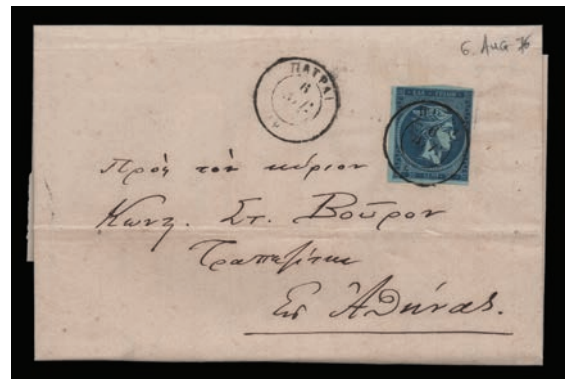 6. Aug 76
ΠΑΤΡΑΙ
6
Πρός τον κύριον
Κωνς. Στ. Βούρον
Τραπεζίτην
Εις Ἀθήνας.